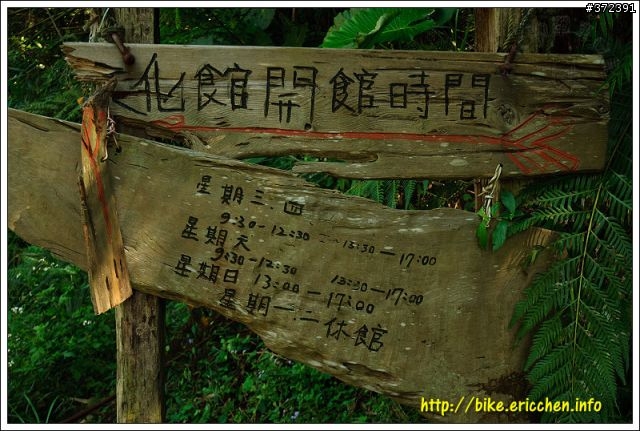 #372391
化館開館時間
星期三.四
9:30-12:30 13:30-17:00
星期天
9:30-12:30 13:30-17:00
星期日 13:00-17:00
星期一.二休館
http://bike.ericchen.info